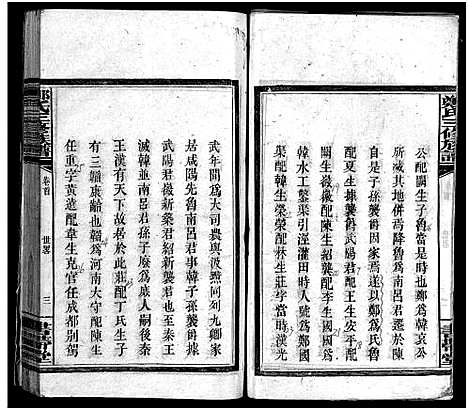 鄭氏三修族譜
公配關生子魯當是時也鄭爲韓哀公
所滅其地併焉降魯爲南呂君遷於陳
自是子孫襲爵因家焉遂以鄭爲氏魯
配夏生㨗襲爵武陽君配王生徽徽配
關生毅毅配陳生紹襲爵配李生國國爲
水工鑿渠引涇灌溉田時人號爲鄭國
渠配韓生榮榮配林生莊字當時漢光
武年間爲大司農與汲黯同列九卿家
居咸陽先南呂君事韓子孫襲爵據
武陽君徽新榮君紹新襲君也秦
滅韓並南呂君子孫廢爲人嗣後秦
亡漢有天下故名於此莊配丁氏生子
有三韜康齡也韜爲河南太守配陳生
任重字黃遠配韋生克官任成都別駕
鄭氏三修族譜
卷首
世畧
三
書帶草堂